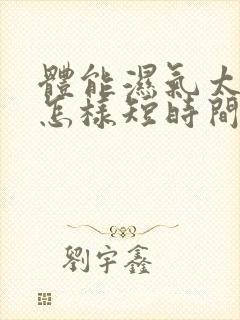 體能濕氣太
怎樣短時間
劉宇鑫